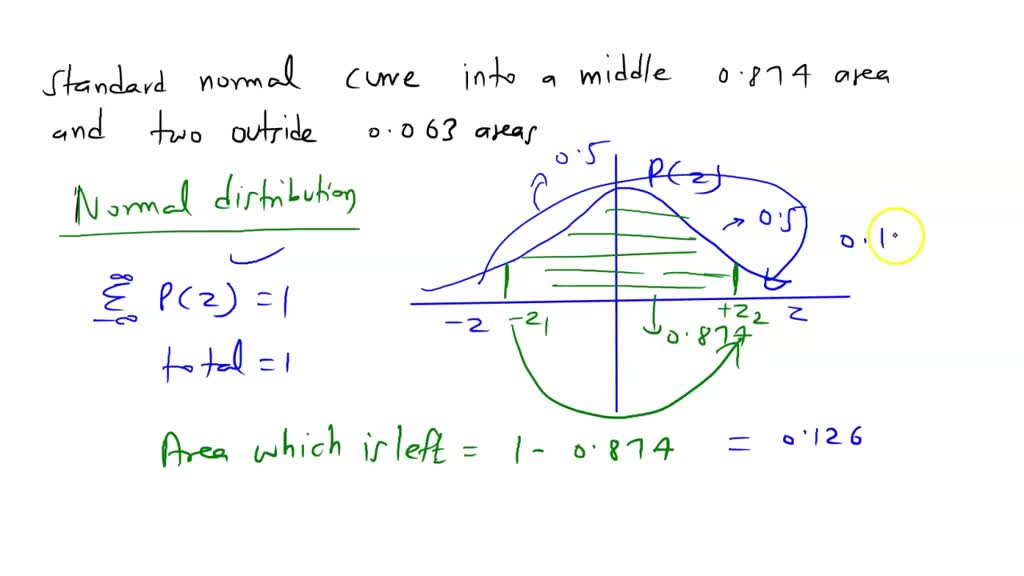 Standard normal curve into a middle 0.874 area
and two outside 0.063 areas
0.5
P(z)
Normal distribution
0.5
0.1
∞
Σ P(z) = 1
-∞
-z -z1 +z2 z
0.874
total = 1
Area which is left = 1 - 0.874 = 0.126